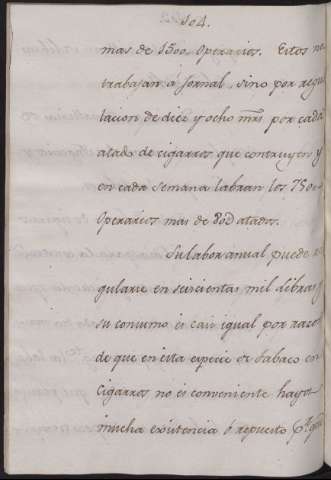 104.
mas de 1500. operarios. Estos no
trabajan á Jornal, sino por regu
lacion de diez y ocho mrs. por cada
atado de cigarros que contruyen y
en cada semana labran los 750
operarios mas de 80D atados.
Su labor anual puede re
gularse en seiscientas mil libras y
su consumo es casi igual por razon
de que en esta especie de tabaco en
cigarros no es conveniente haya
mucha existencia ó repuesto